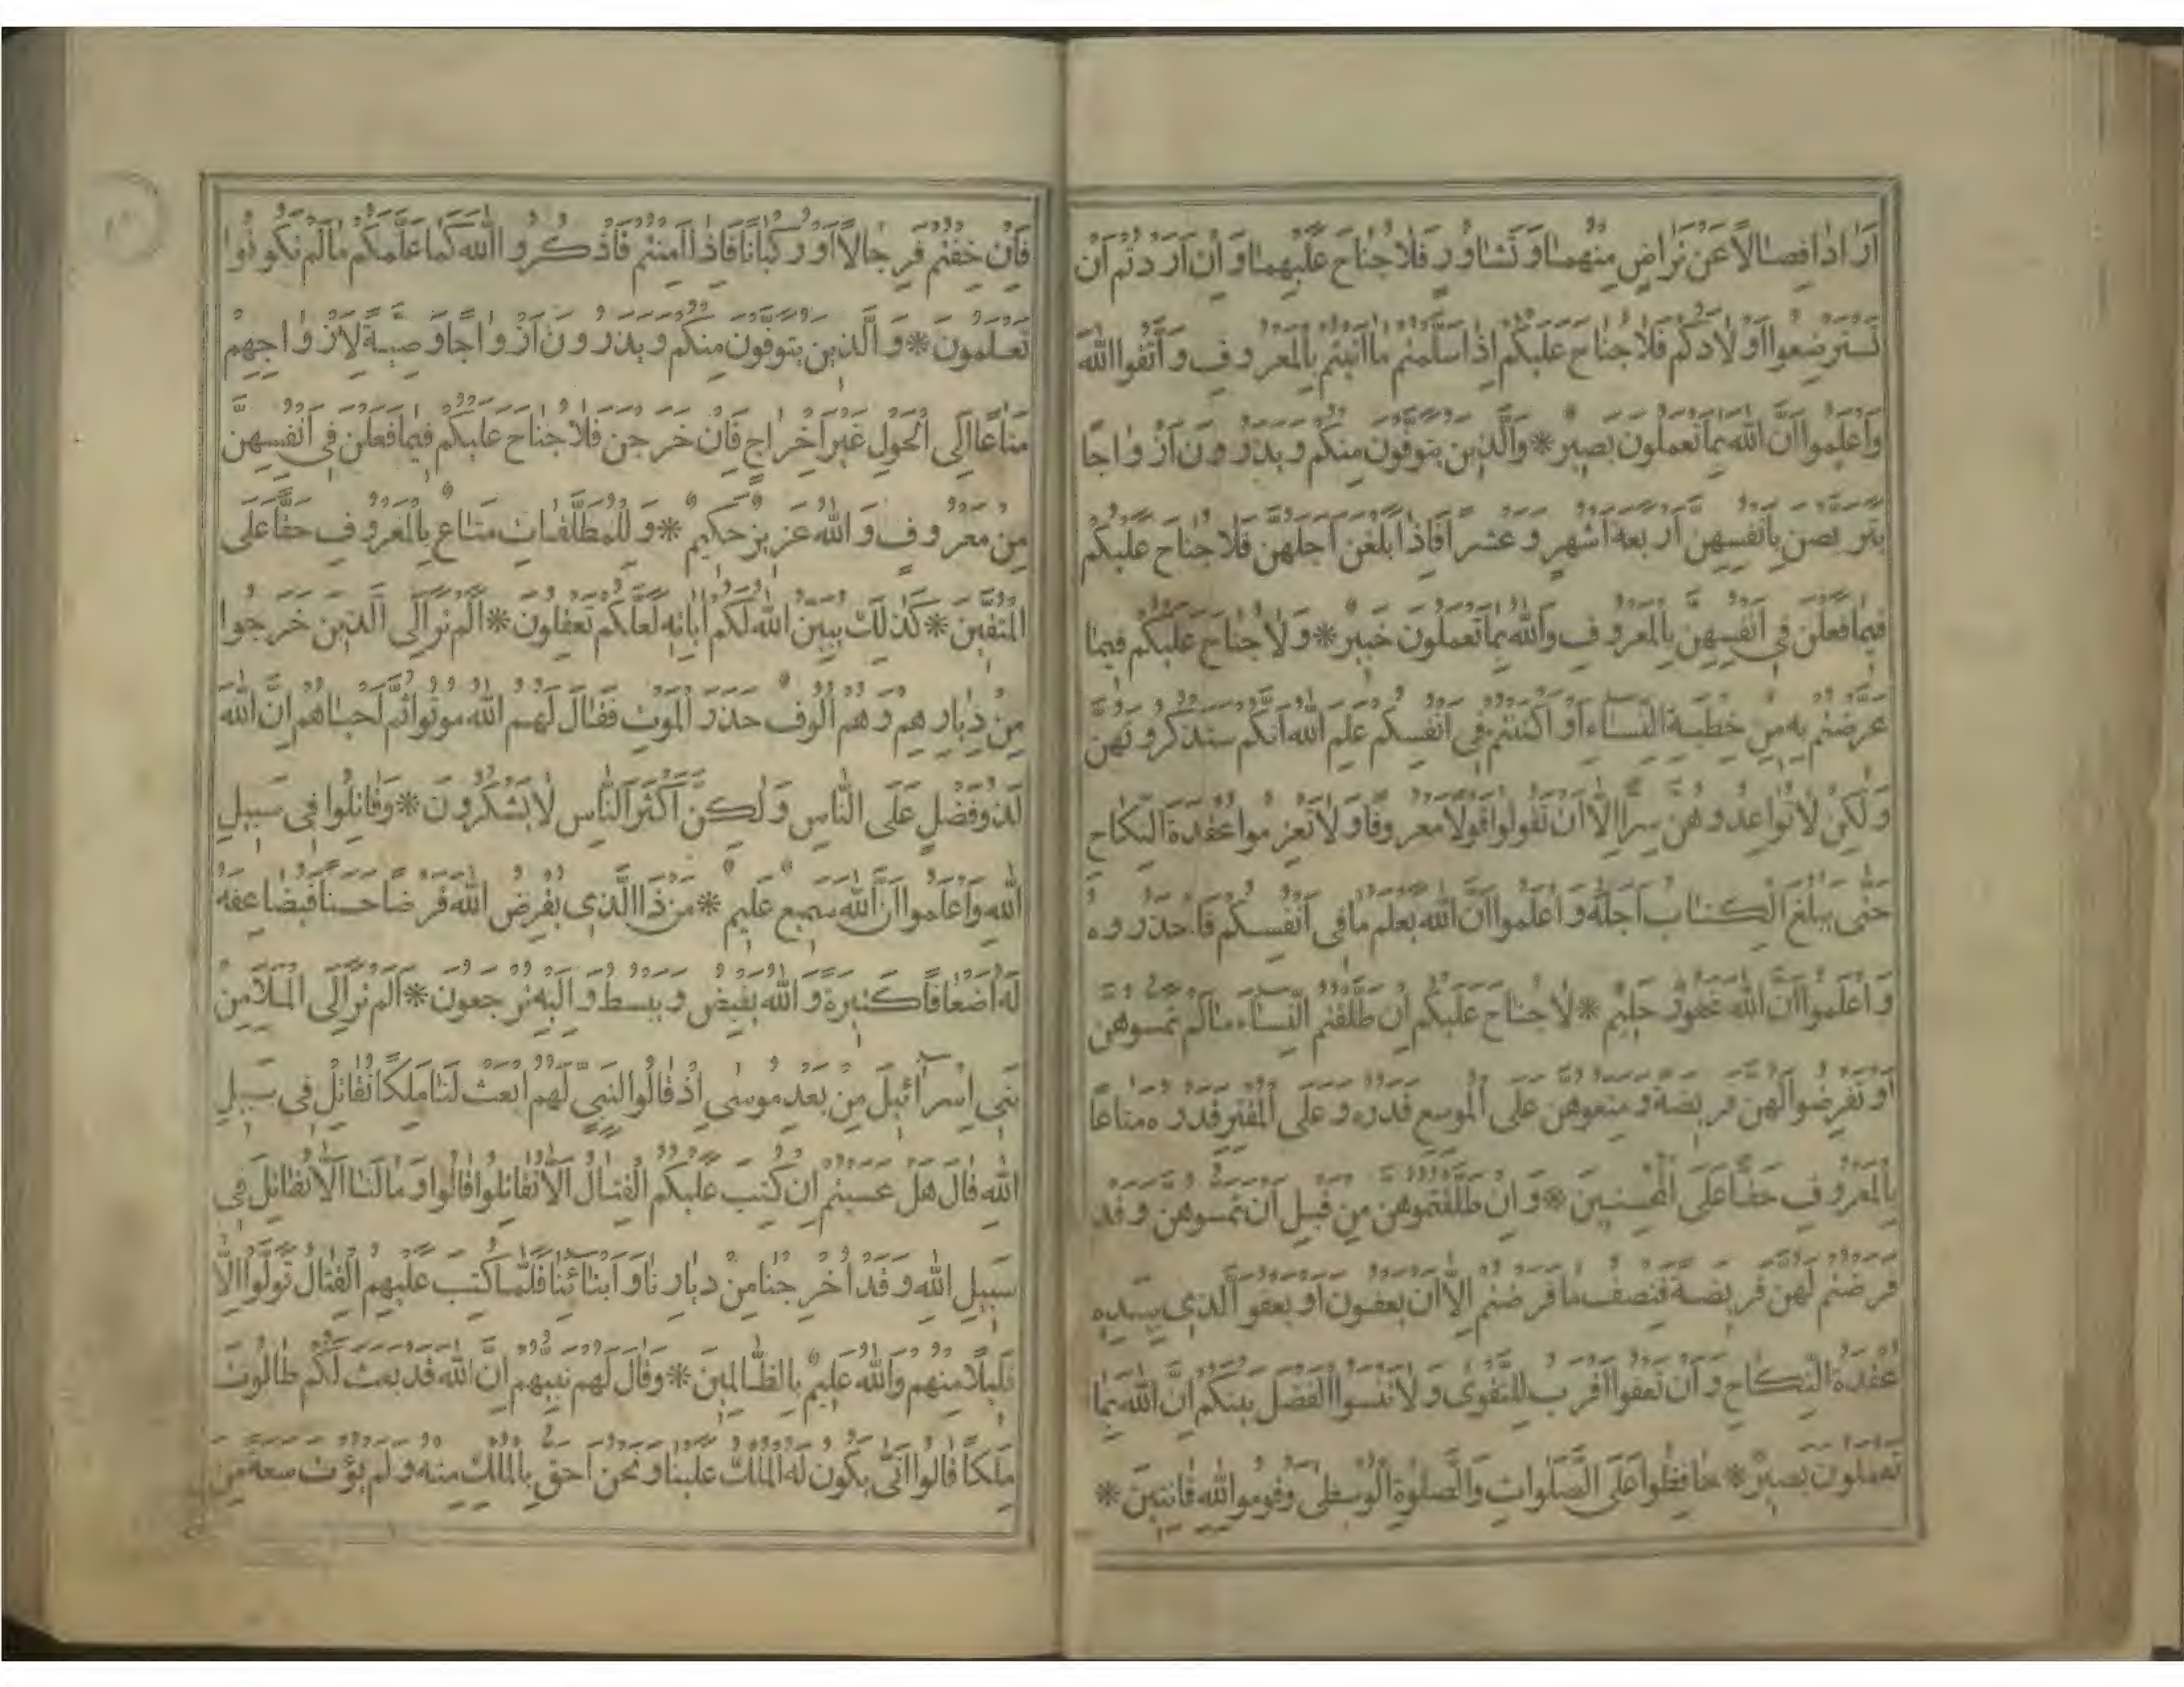 أَرَادَا فِصَالًا عَنْ تَرَاضٍ مِنْهُمَا وَتَشَاوُرٍ فَلَا جُنَاحَ عَلَيْهِمَا وَإِنْ أَرَدْتُمْ أَنْ
تَسْتَرْضِعُوا أَوْلَادَكُمْ فَلَا جُنَاحَ عَلَيْكُمْ إِذَا سَلَّمْتُمْ مَا آتَيْتُمْ بِالْمَعْرُوفِ وَاتَّقُوا اللهَ
وَاعْلَمُوا أَنَّ اللهَ بِمَا تَعْمَلُونَ بَصِيرٌ * وَالَّذِينَ يُتَوَفَّوْنَ مِنْكُمْ وَيَذَرُونَ أَزْوَاجًا
يَتَرَبَّصْنَ بِأَنْفُسِهِنَّ أَرْبَعَةَ أَشْهُرٍ وَعَشْرًا فَإِذَا بَلَغْنَ أَجَلَهُنَّ فَلَا جُنَاحَ عَلَيْكُمْ
فِيمَا فَعَلْنَ فِي أَنْفُسِهِنَّ بِالْمَعْرُوفِ وَاللهُ بِمَا تَعْمَلُونَ خَبِيرٌ * وَلَا جُنَاحَ عَلَيْكُمْ فِيمَا
عَرَّضْتُمْ بِهِ مِنْ خِطْبَةِ النِّسَاءِ أَوْ أَكْنَنْتُمْ فِي أَنْفُسِكُمْ عَلِمَ اللهُ أَنَّكُمْ سَتَذْكُرُونَهُنَّ
وَلَكِنْ لَا تُوَاعِدُوهُنَّ سِرًّا إِلَّا أَنْ تَقُولُوا قَوْلًا مَعْرُوفًا وَلَا تَعْزِمُوا عُقْدَةَ النِّكَاحِ
حَتَّى يَبْلُغَ الْكِتَابُ أَجَلَهُ وَاعْلَمُوا أَنَّ اللهَ يَعْلَمُ مَا فِي أَنْفُسِكُمْ فَاحْذَرُوهُ
وَاعْلَمُوا أَنَّ اللهَ غَفُورٌ حَلِيمٌ * لَا جُنَاحَ عَلَيْكُمْ إِنْ طَلَّقْتُمُ النِّسَاءَ مَا لَمْ تَمَسُّوهُنَّ
أَوْ تَفْرِضُوا لَهُنَّ فَرِيضَةً وَمَتِّعُوهُنَّ عَلَى الْمُوسِعِ قَدَرُهُ وَعَلَى الْمُقْتِرِ قَدَرُهُ مَتَاعًا
بِالْمَعْرُوفِ حَقًّا عَلَى الْمُحْسِنِينَ * وَإِنْ طَلَّقْتُمُوهُنَّ مِنْ قَبْلِ أَنْ تَمَسُّوهُنَّ وَقَدْ
فَرَضْتُمْ لَهُنَّ فَرِيضَةً فَنِصْفُ مَا فَرَضْتُمْ إِلَّا أَنْ يَعْفُونَ أَوْ يَعْفُوَ الَّذِي بِيَدِهِ
عُقْدَةُ النِّكَاحِ وَأَنْ تَعْفُوا أَقْرَبُ لِلتَّقْوَى وَلَا تَنْسَوُا الْفَضْلَ بَيْنَكُمْ إِنَّ اللهَ بِمَا
تَعْمَلُونَ بَصِيرٌ * حَافِظُوا عَلَى الصَّلَوَاتِ وَالصَّلَوةِ الْوُسْطَى وَقُومُوا لِلَّهِ قَانِتِينَ *
فَإِنْ خِفْتُمْ فَرِجَالًا أَوْ رُكْبَانًا فَإِذَا أَمِنْتُمْ فَاذْكُرُوا اللهَ كَمَا عَلَّمَكُمْ مَا لَمْ تَكُونُوا
تَعْلَمُونَ * وَالَّذِينَ يُتَوَفَّوْنَ مِنْكُمْ وَيَذَرُونَ أَزْوَاجًا وَصِيَّةً لِأَزْوَاجِهِمْ
مَتَاعًا إِلَى الْحَوْلِ غَيْرَ إِخْرَاجٍ فَإِنْ خَرَجْنَ فَلَا جُنَاحَ عَلَيْكُمْ فِيمَا فَعَلْنَ فِي أَنْفُسِهِنَّ
مِنْ مَعْرُوفٍ وَاللهُ عَزِيزٌ حَكِيمٌ * وَلِلْمُطَلَّقَاتِ مَتَاعٌ بِالْمَعْرُوفِ حَقًّا عَلَى
الْمُتَّقِينَ * كَذَلِكَ يُبَيِّنُ اللهُ لَكُمْ آيَاتِهِ لَعَلَّكُمْ تَعْقِلُونَ * أَلَمْ تَرَ إِلَى الَّذِينَ خَرَجُوا
مِنْ دِيَارِهِمْ وَهُمْ أُلُوفٌ حَذَرَ الْمَوْتِ فَقَالَ لَهُمُ اللهُ مُوتُوا ثُمَّ أَحْيَاهُمْ إِنَّ اللهَ
لَذُو فَضْلٍ عَلَى النَّاسِ وَلَكِنَّ أَكْثَرَ النَّاسِ لَا يَشْكُرُونَ * وَقَاتِلُوا فِي سَبِيلِ
اللهِ وَاعْلَمُوا أَنَّ اللهَ سَمِيعٌ عَلِيمٌ * مَنْ ذَا الَّذِي يُقْرِضُ اللهَ قَرْضًا حَسَنًا فَيُضَاعِفَهُ
لَهُ أَضْعَافًا كَثِيرَةً وَاللهُ يَقْبِضُ وَيَبْسُطُ وَإِلَيْهِ تُرْجَعُونَ * أَلَمْ تَرَ إِلَى الْمَلَإِ مِنْ
بَنِي إِسْرَائِيلَ مِنْ بَعْدِ مُوسَى إِذْ قَالُوا لِنَبِيٍّ لَهُمُ ابْعَثْ لَنَا مَلِكًا نُقَاتِلْ فِي سَبِيلِ
اللهِ قَالَ هَلْ عَسَيْتُمْ إِنْ كُتِبَ عَلَيْكُمُ الْقِتَالُ أَلَّا تُقَاتِلُوا قَالُوا وَمَا لَنَا أَلَّا نُقَاتِلَ فِي
سَبِيلِ اللهِ وَقَدْ أُخْرِجْنَا مِنْ دِيَارِنَا وَأَبْنَائِنَا فَلَمَّا كُتِبَ عَلَيْهِمُ الْقِتَالُ تَوَلَّوْا إِلَّا
قَلِيلًا مِنْهُمْ وَاللهُ عَلِيمٌ بِالظَّالِمِينَ * وَقَالَ لَهُمْ نَبِيُّهُمْ إِنَّ اللهَ قَدْ بَعَثَ لَكُمْ طَالُوتَ
مَلِكًا قَالُوا أَنَّى يَكُونُ لَهُ الْمُلْكُ عَلَيْنَا وَنَحْنُ أَحَقُّ بِالْمُلْكِ مِنْهُ وَلَمْ يُؤْتَ سَعَةً مِنَ